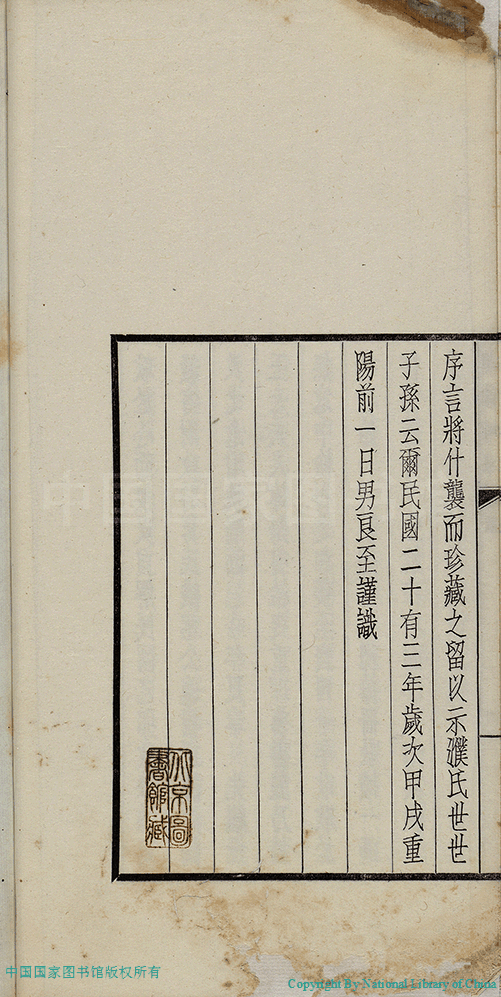 序言將什襲而珍藏之留以示濮氏世世
子孫云爾民國二十有三年歲次甲戌重
陽前一日男良至謹識
北京圖
書館藏
中国国家图
中国国家图书馆版权所有
Copyright By National Library of China